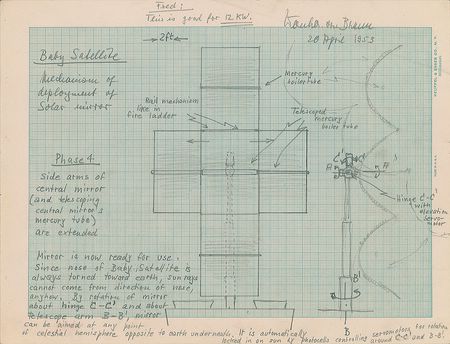 Fred:
This is good for 12 KW.
Wernher von Braun
20 April 1953
2ft
Baby Satellite
Mechanism of
deployment of
Solar mirror
Mercury
boiler tube
Rail mechanism
like in
fire ladder
Telescoped
mercury
boiler tube
Phase 4
Side arms of
central mirror
(and telescoping
central mirror's
mercury tube)
are extended
C'
C
A
A'
Hinge C-C'
with elevation
servo-
motor
Mirror is now ready for use.
Since nose of Baby Satellite is
always turned toward earth, sun rays
cannot come from direction of nose,
anyhow. By rotation of mirror
about hinge C-C' and about
telescope arm B-B', mirror
can be aimed at any point
of celestial hemisphere opposite to earth underneath. It is automatically
locked in on sun by photocells controlling servomotors for rotation
around C-C' and B-B'.
B'
B
KEUFFEL & ESSER CO., N. Y.